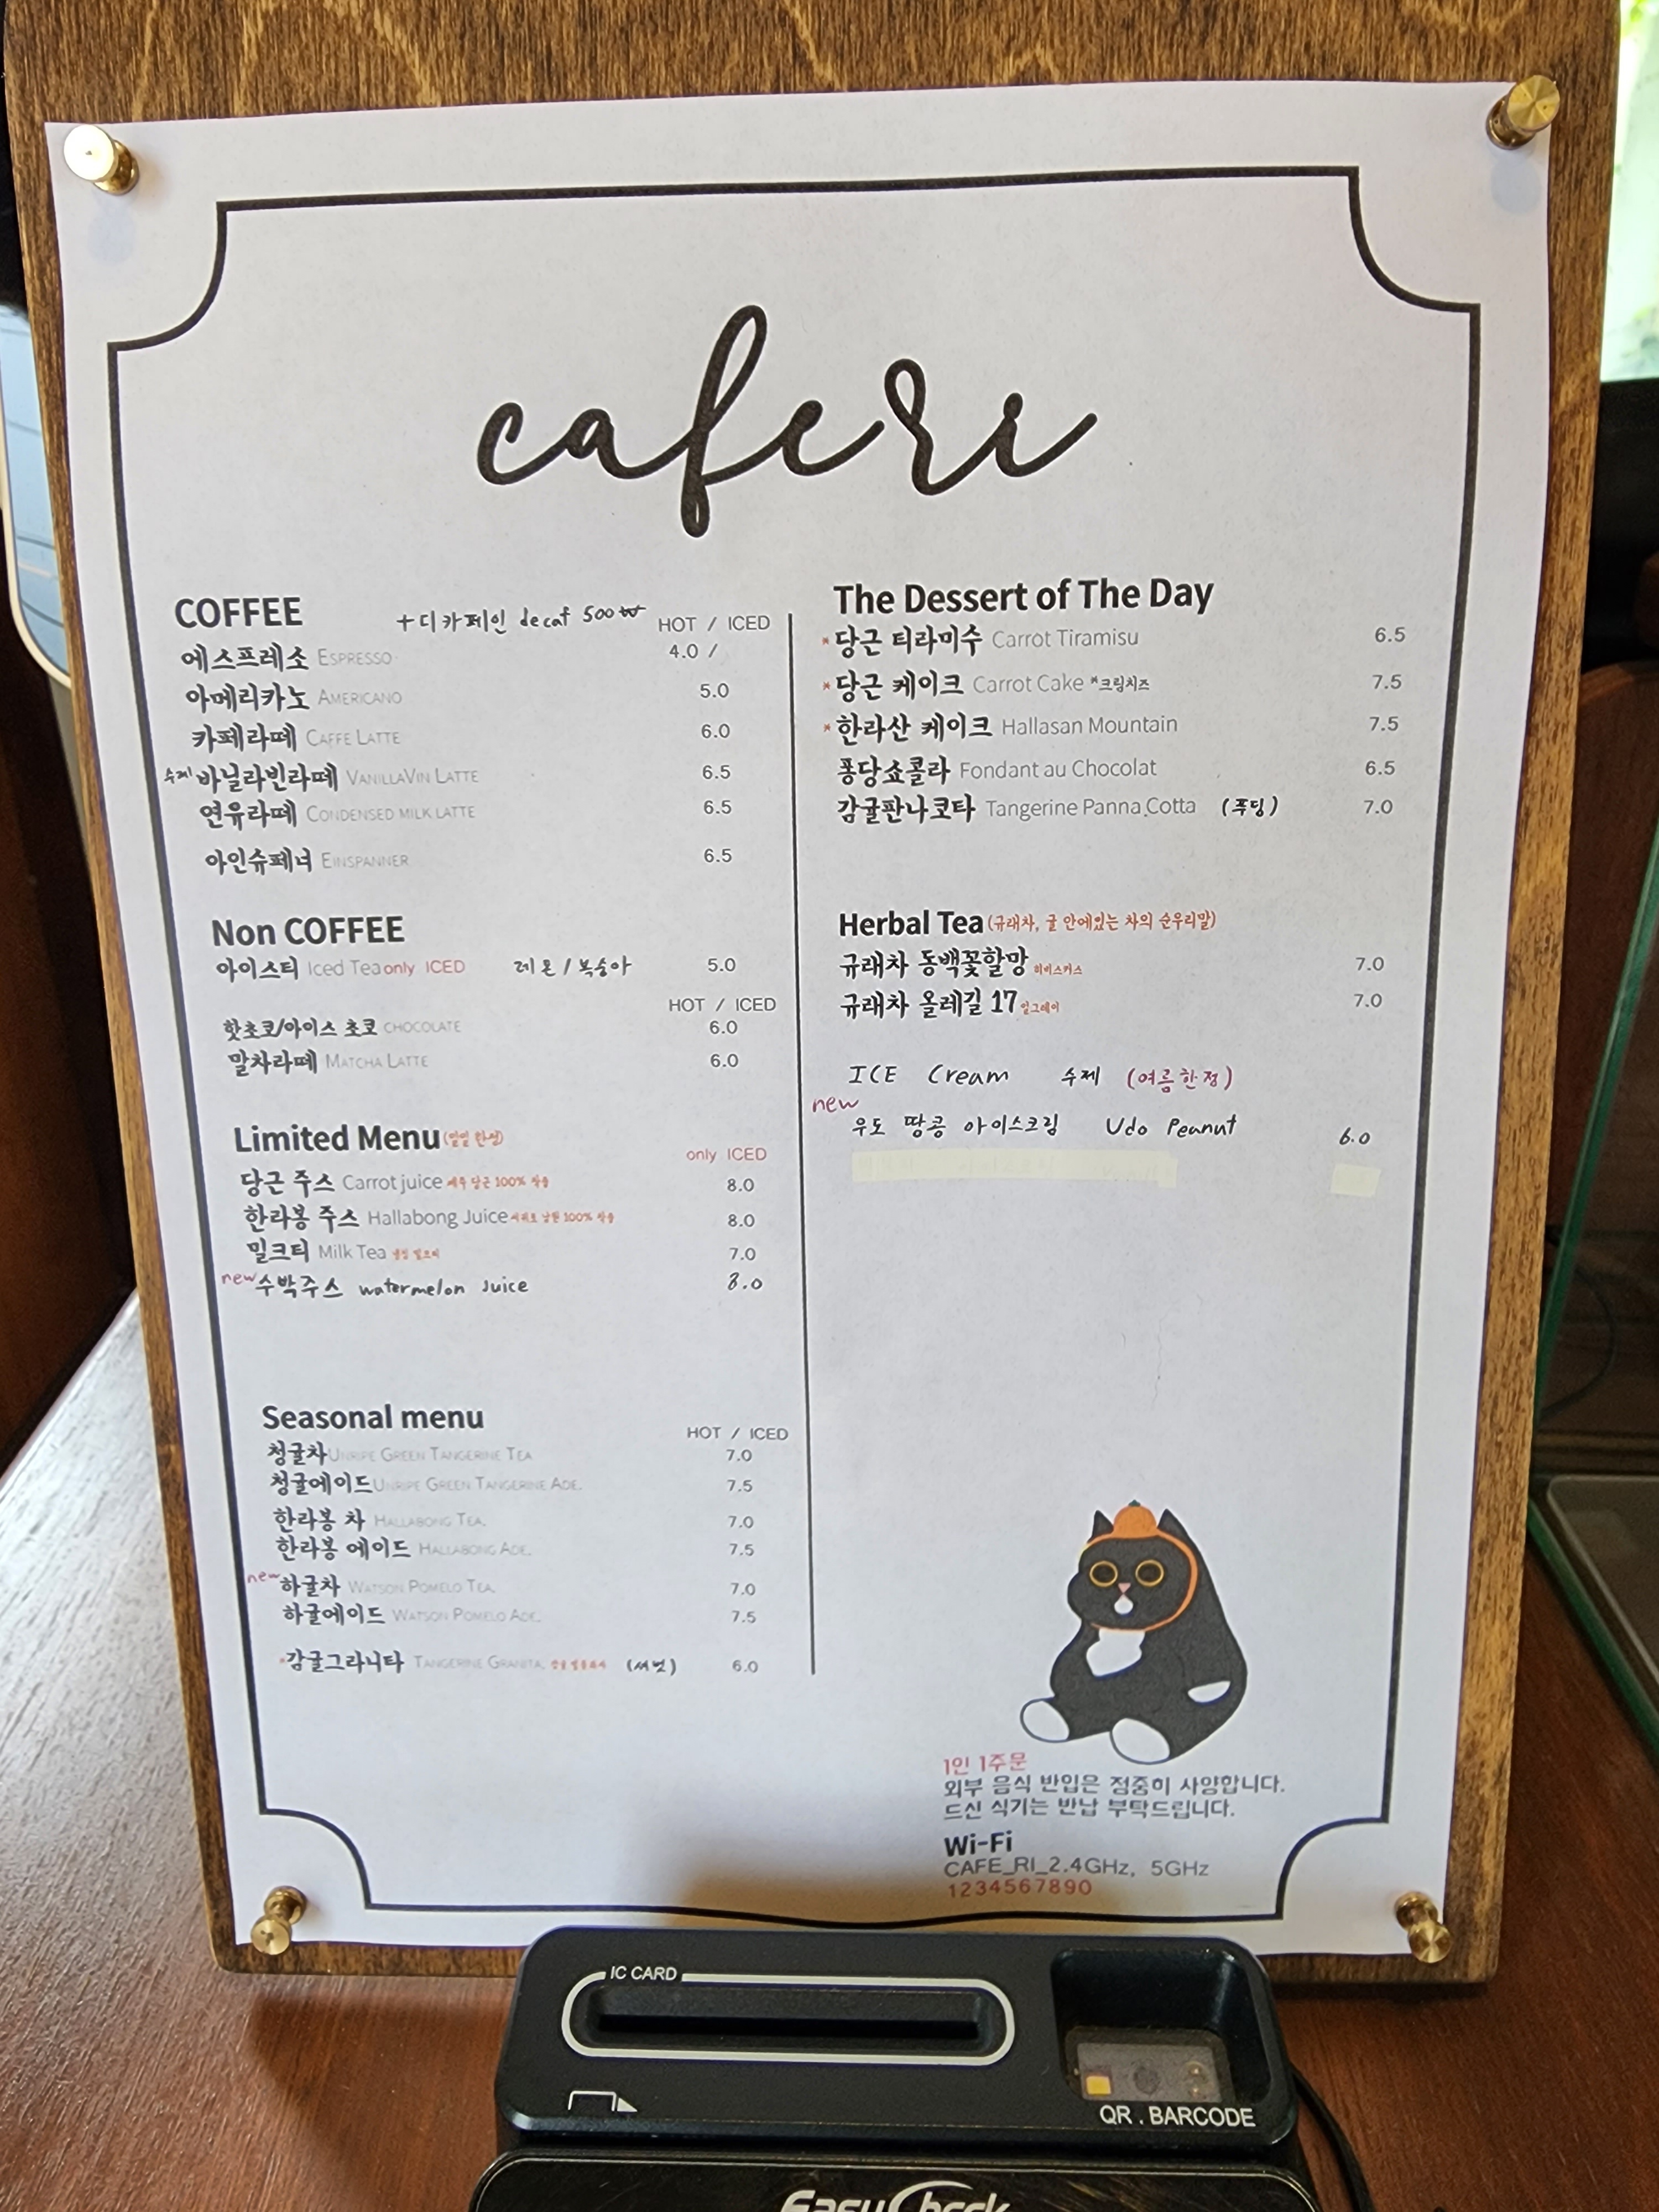 caferi
COFFEE +디카페인 decaf 500₩ HOT / ICED
에스프레소 ESPRESSO 4.0 /
아메리카노 AMERICANO 5.0
카페라떼 CAFFE LATTE 6.0
수제 바닐라빈라떼 VANILLAVIN LATTE 6.5
연유라떼 CONDENSED MILK LATTE 6.5
아인슈페너 EINSPANNER 6.5
Non COFFEE
아이스티 Iced Tea only ICED 레몬/복숭아 5.0
HOT / ICED
핫초코/아이스 초코 CHOCOLATE 6.0
말차라떼 MATCHA LATTE 6.0
Limited Menu (일일 한정)
only ICED
당근 주스 Carrot juice 제주 당근 100% 착즙 8.0
한라봉 주스 Hallabong Juice 서귀포 남원 100% 착즙 8.0
밀크티 Milk Tea 냉침 밀크티 7.0
new 수박주스 watermelon Juice 8.0
Seasonal menu HOT / ICED
청귤차 UNRIPE GREEN TANGERINE TEA 7.0
청귤에이드 UNRIPE GREEN TANGERINE ADE. 7.5
한라봉 차 HALLABONG TEA. 7.0
한라봉 에이드 HALLABONG ADE. 7.5
new 하귤차 WATSON POMELO TEA. 7.0
하귤에이드 WATSON POMELO ADE. 7.5
*감귤그라니타 TANGERINE GRANITA. (셔벗) 6.0
The Dessert of The Day
*당근 티라미수 Carrot Tiramisu 6.5
*당근 케이크 Carrot Cake *크림치즈 7.5
*한라산 케이크 Hallasan Mountain 7.5
퐁당쇼콜라 Fondant au Chocolat 6.5
감귤판나코타 Tangerine Panna Cotta (푸딩) 7.0
Herbal Tea (규래차, 귤 안에있는 차의 순우리말)
규래차 동백꽃할망 히비스커스 7.0
규래차 올레길 17 얼그레이 7.0
ICE Cream 수제 (여름한정)
new
우도 땅콩 아이스크림 Udo Peanut 6.0
1인 1주문
외부 음식 반입은 정중히 사양합니다.
드신 식기는 반납 부탁드립니다.
Wi-Fi
CAFE_RI_2.4GHz, 5GHz
1234567890
IC CARD
QR . BARCODE
EasyCheck